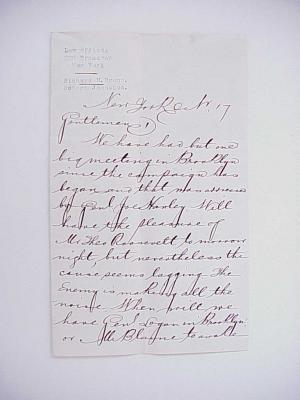 Law Offices
Broadway
New York
Richard H. Bruno.
Robert Johnston.
New York Oct. 17
Gentlemen,
We have had but one
big meeting in Brooklyn
since the campaign has
began and that was addressed
by Genl. Joe Hawley Will
have the pleasure of
Mr Theo Roosevelt tomorrow
night, but nevertheless the
cause seems lagging. The
Enemy is making all the
noise. When will we
have Genl Logan in Brooklyn
or Mr Blaine